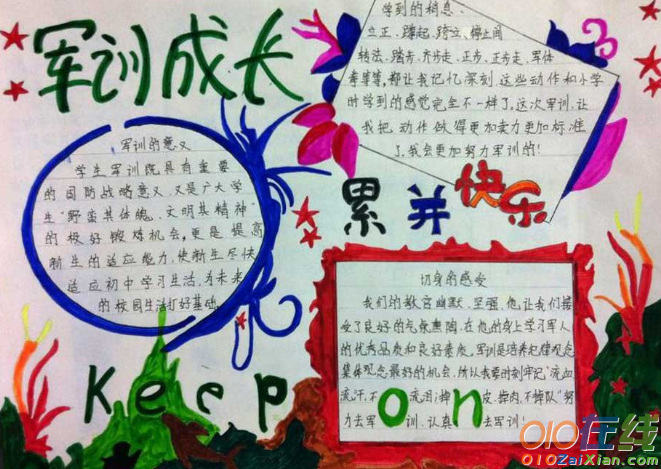 军训成长
学到的稍息
立正、蹲起、跨立、停止间
转法、踏步、齐步走、正步、正步走、军体
拳等等，都让我记忆深刻、这些动作和小学
时学到的感觉完全不一样了，这次军训，让
我把动作做得更加卖力更加标准
了，我会更加努力军训的！
军训的意义
学生军训既具有重要
的国防战略意义，又是广大学
生"野蛮其体魄、文明其精神"
的极好锻炼机会，更是提高
新生的适应能力，使新生尽快
适应初中学习生活，为未来
的校园生活打好基础
累并快乐
切身的感受
我们的教官幽默、坚强，他让我们接
受了良好的气氛熏陶，在他的身上学习军人
的优秀品质和良好素质，军训是培养纪律观念
集体观念最好的机会，所以我要时刻牢记"流血
流汗，不流泪，掉皮、掉肉、不掉队"努
力去军训、认真去军训！
Keep on
010在线
010ZaiXian.com